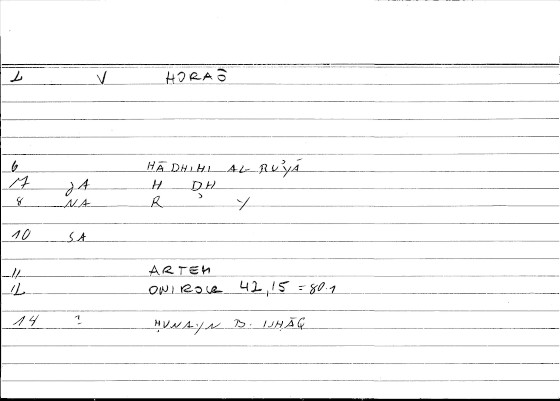 1 V HORAŌ
6 HĀDHIHI AL RUʾYĀ
17 JA H DH
8 NA R ʾ Y
10 SA
11 ARTEM
12 ONIROCR 42,15 = 80.1
14 ? ḤUNAYN B. ISḤĀQ